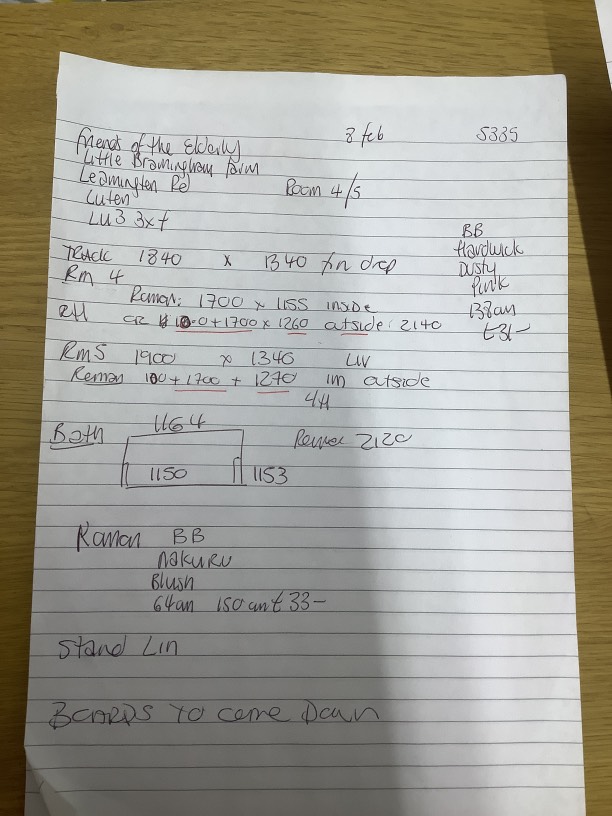 8 feb 5335
Friends of the Elderly
Little Bramingham Farm
Leamington Rd Room 4/5
Luton
LU3 3xt
BB
Hardwick
Dusty
Pink
138cm
£31-
TRACK 1840 x 1340 fin drop
Rm 4
Roman: 1700 x 1155 inside
RH OR 100+1700 x 1260 outside: 2140
Rm5 1900 x 1340
Roman 100+1700 + 1270 outside
LH
Both 1164 2120
1150 1153
Roman BB
Nakuru
Blush
64cm 150cm £33-
Stand Lin
BOARDS TO come Down